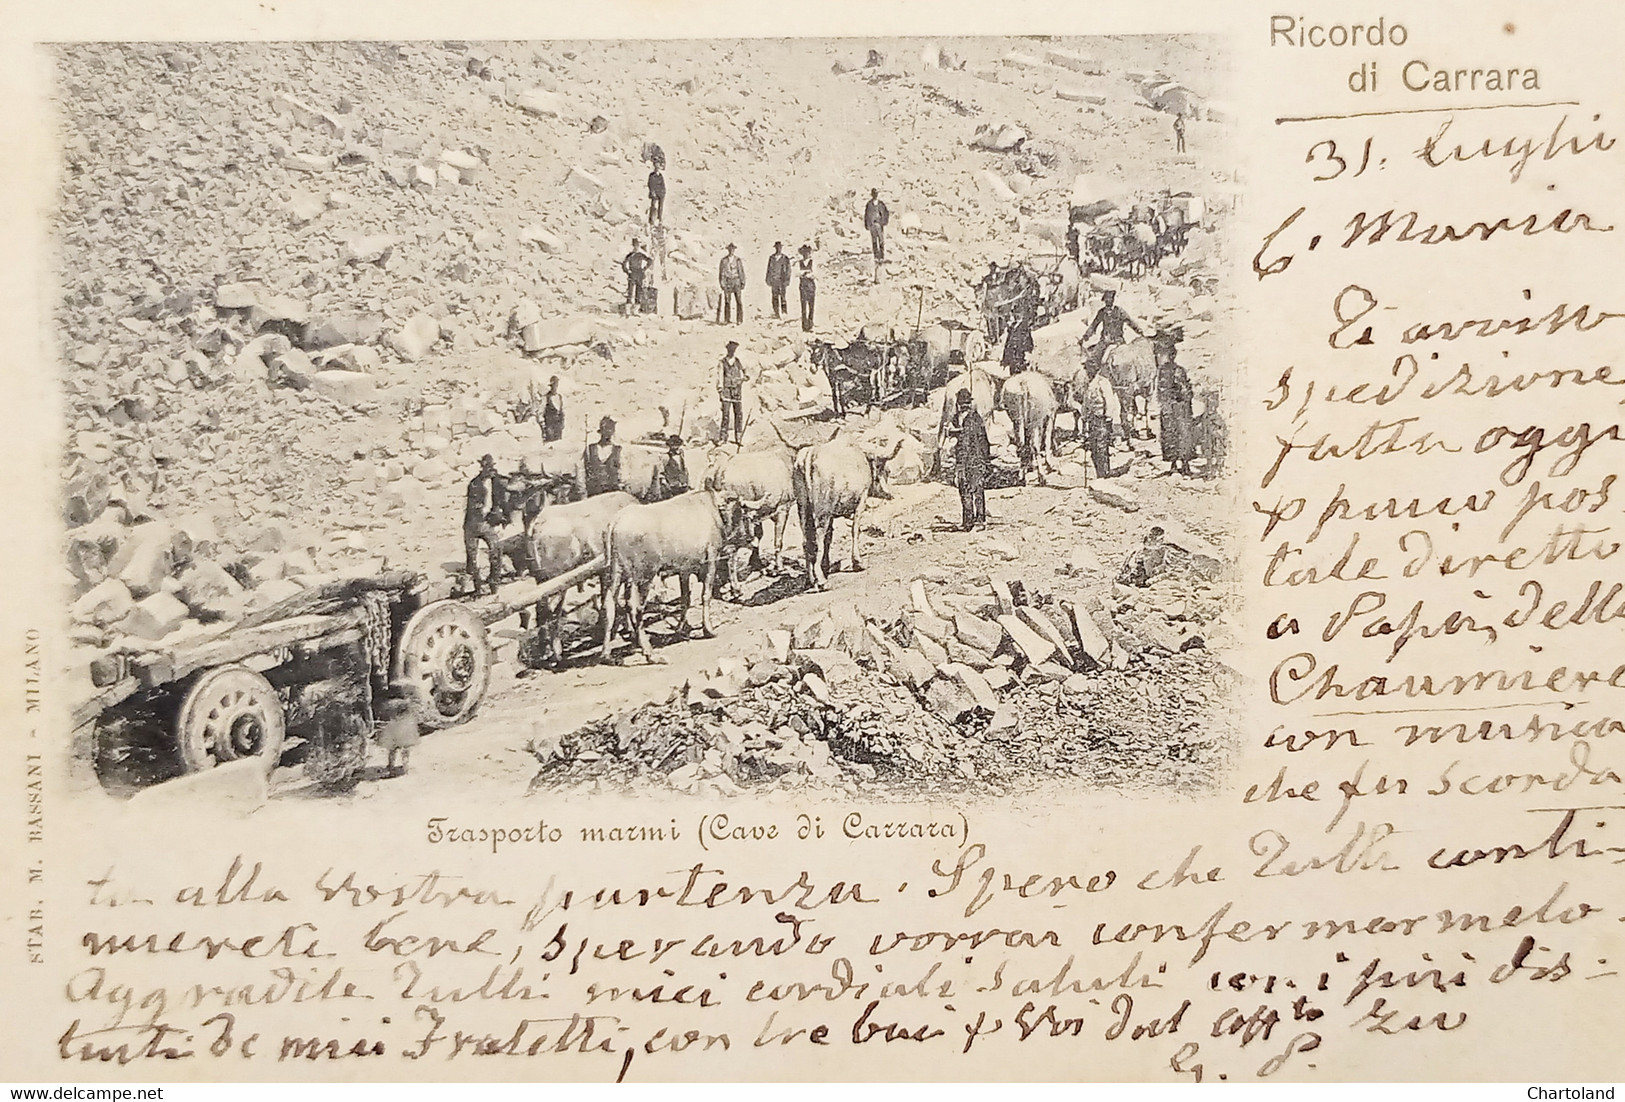 Ricordo
di Carrara
31. Luglio
C. Maria
Ti avviso
spedizione
fatta oggi
pacco pos-
tale diretto
a Papà, della
Chaumiere
con musica
che fu scorda
Trasporto marmi (Cave di Carrara)
ta alla Vostra partenza. Spero che Tutti conti-
nuerete bene, sperando vorrai confermarmelo.
Aggradite Tutti miei cordiali saluti con i più dis-
tinti de miei Fratelli, con tre baci x Voi dal aff.to zio
G. P.
STAB. M. BASSANI - MILANO
Chartoland